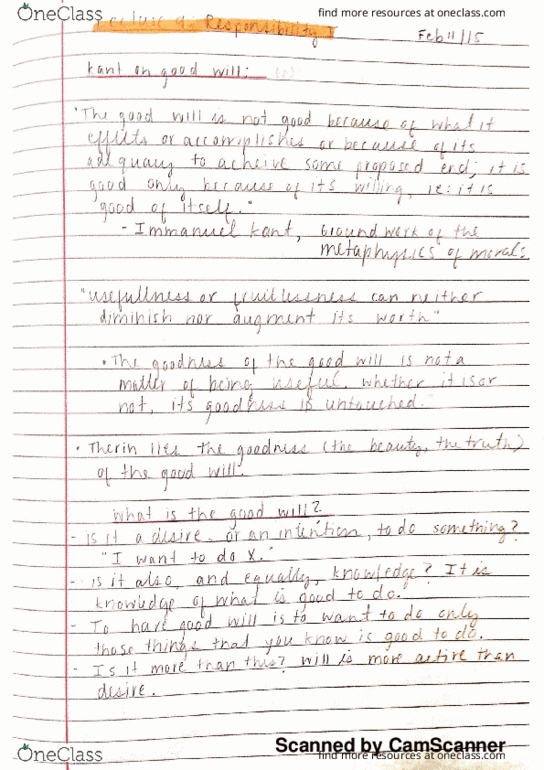 OneClass
find more resources at oneclass.com
Responsibility I
Feb 11/15
kant on good will:
"The good will is not good because of what it
effects or accomplishes or because of its
adequacy to acheive some proposed end; it is
good only because of its willing, ie: it is
good of itself."
- Immanuel Kant, Ground work of the
metaphysics of morals
"usefullness or fruitlessness can neither
diminish nor augment its worth"
• The goodness of the good will is not a
matter of being useful. whether it is or
not, its goodness is untouched.
• Therin lies the goodness (the beauty, the truth)
of the good will.
What is the good will?
- is it a desire, or an intention, to do something?
"I want to do X."
- is it also, and equally, knowledge? It is
knowledge of what is good to do.
- To have good will is to want to do only
those things that you know is good to do.
- Is it more than this? will is more active than
desire.
Scanned by CamScanner
OneClass
find more resources at oneclass.com